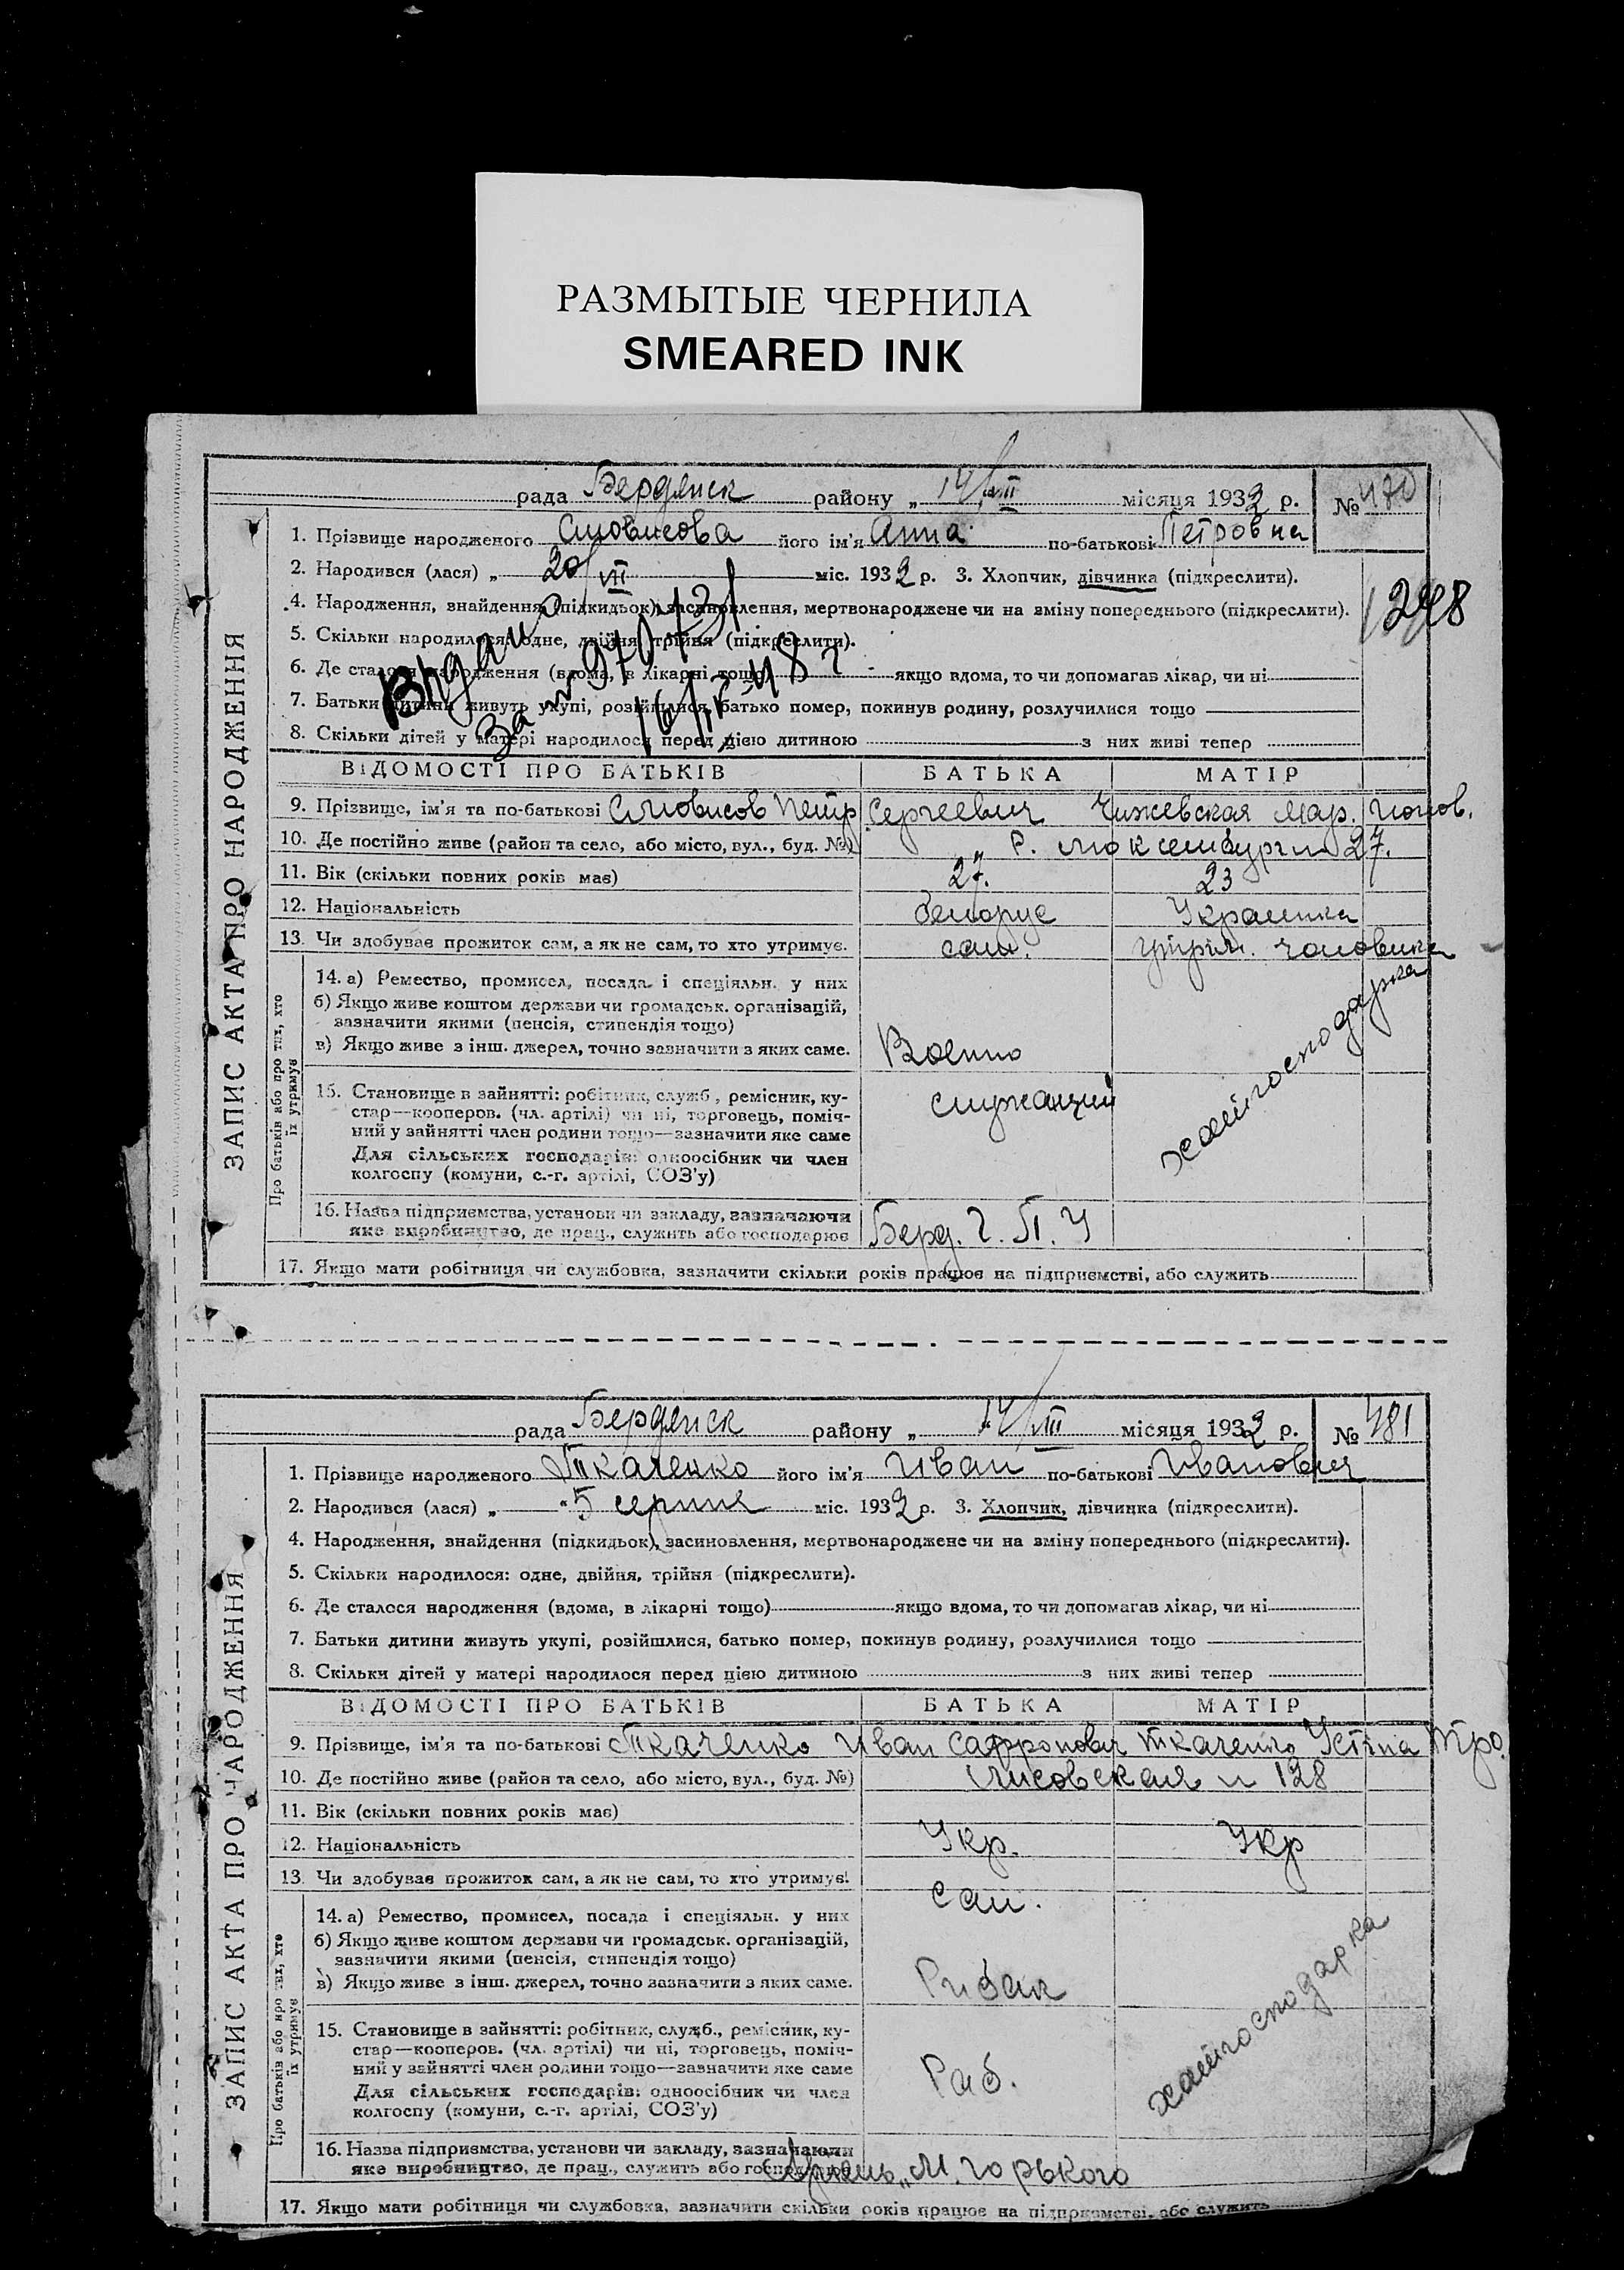 РАЗМЫТЫЕ ЧЕРНИЛА
SMEARED INK
рада Бердянск району „ 14/VIII місяця 1932 р. № 480
1. Прізвище народженого його ім'я Анна по-батькові Петровна
2. Народився (лася) „ 20/VII міс. 1932 р. 3. Хлопчик, дівчинка (підкреслити).
4. Народження, знайдення (підкидьок), засиновлення, мертвонароджене чи на зміну попереднього (підкреслити).
1248
5. Скільки народилося: одне, двійня, трійня (підкреслити).
6. Де сталося народження (вдома, в лікарні тощо) якщо вдома, то чи допомагав лікар, чи ні
7. Батьки дитини живуть укупі, розійшлися, батько помер, покинув родину, розлучилися тощо
8. Скільки дітей у матері народилося перед цією дитиною з них живі тепер
ВІДОМОСТІ ПРО БАТЬКІВ БАТЬКА МАТІР
9. Прізвище, ім'я та по-батькові Петр Сергеевич Чижевская Мар.
10. Де постійно живе (район та село, або місто, вул., буд. №) Р. Люксембург № 27.
11. Вік (скільки повних років має) 27. 23
12. Національність белорус Украинка
13. Чи здобуває прожиток сам, а як не сам, то хто утримує. сам. утрим. чоловика
14. а) Ремество, промисел, посада і спеціяльн. у них
б) Якщо живе коштом держави чи громадськ. організацій,
зазначити якими (пенсія, стипендія тощо)
в) Якщо живе з інш. джерел, точно зазначити з яких саме. Военно
15. Становище в зайнятті: робітник, служб., ремісник, ку-
стар—кооперов. (чл. артілі) чи ні, торговець, поміч- служащий
ний у зайнятті член родини тощо—зазначити яке саме
Для сільських господарів: одноосібник чи член
колгоспу (комуни, с.-г. артілі, СОЗ'у)
хатнгосподарка
16. Назва підприємства, установи чи закладу, зазначаючи
яке виробництво, де прац., служить або господарює Берд. Г. П. У
17. Якщо мати робітниця чи службовка, зазначити скільки років працює на підприємстві, або служить
ЗАПИС АКТА ПРО НАРОДЖЕННЯ
Про батьків або про тих, хто
їх утримує
Видано
за № 970731
16/IV-48 г
рада Бердянск району „ 14/VIII місяця 1932 р. № 481
1. Прізвище народженого Ткаченко його ім'я Иван по-батькові Иванович
2. Народився (лася) „ 5 серпня міс. 1932 р. 3. Хлопчик, дівчинка (підкреслити).
4. Народження, знайдення (підкидьок), засиновлення, мертвонароджене чи на зміну попереднього (підкреслити).
5. Скільки народилося: одне, двійня, трійня (підкреслити).
6. Де сталося народження (вдома, в лікарні тощо) якщо вдома, то чи допомагав лікар, чи ні
7. Батьки дитини живуть укупі, розійшлися, батько помер, покинув родину, розлучилися тощо
8. Скільки дітей у матері народилося перед цією дитиною з них живі тепер
ВІДОМОСТІ ПРО БАТЬКІВ БАТЬКА МАТІР
9. Прізвище, ім'я та по-батькові Ткаченко Иван Сафронович Ткаченко Устина Тро.
10. Де постійно живе (район та село, або місто, вул., буд. №) Лисовская № 128
11. Вік (скільки повних років має)
12. Національність Укр. Укр
13. Чи здобуває прожиток сам, а як не сам, то хто утримує. сам.
14. а) Ремество, промисел, посада і спеціяльн. у них
б) Якщо живе коштом держави чи громадськ. організацій,
зазначити якими (пенсія, стипендія тощо)
в) Якщо живе з інш. джерел, точно зазначити з яких саме. Рибак
15. Становище в зайнятті: робітник, служб., ремісник, ку-
стар—кооперов. (чл. артілі) чи ні, торговець, поміч-
ний у зайнятті член родини тощо—зазначити яке саме Риб.
Для сільських господарів: одноосібник чи член
колгоспу (комуни, с.-г. артілі, СОЗ'у)
хатнгосподарка
16. Назва підприємства, установи чи закладу, зазначаючи
яке виробництво, де прац., служить або господарює Артель „М. Горького
17. Якщо мати робітниця чи службовка, зазначити скільки років працює на підприємстві, або служить
ЗАПИС АКТА ПРО НАРОДЖЕННЯ
Про батьків або про тих, хто
їх утримує